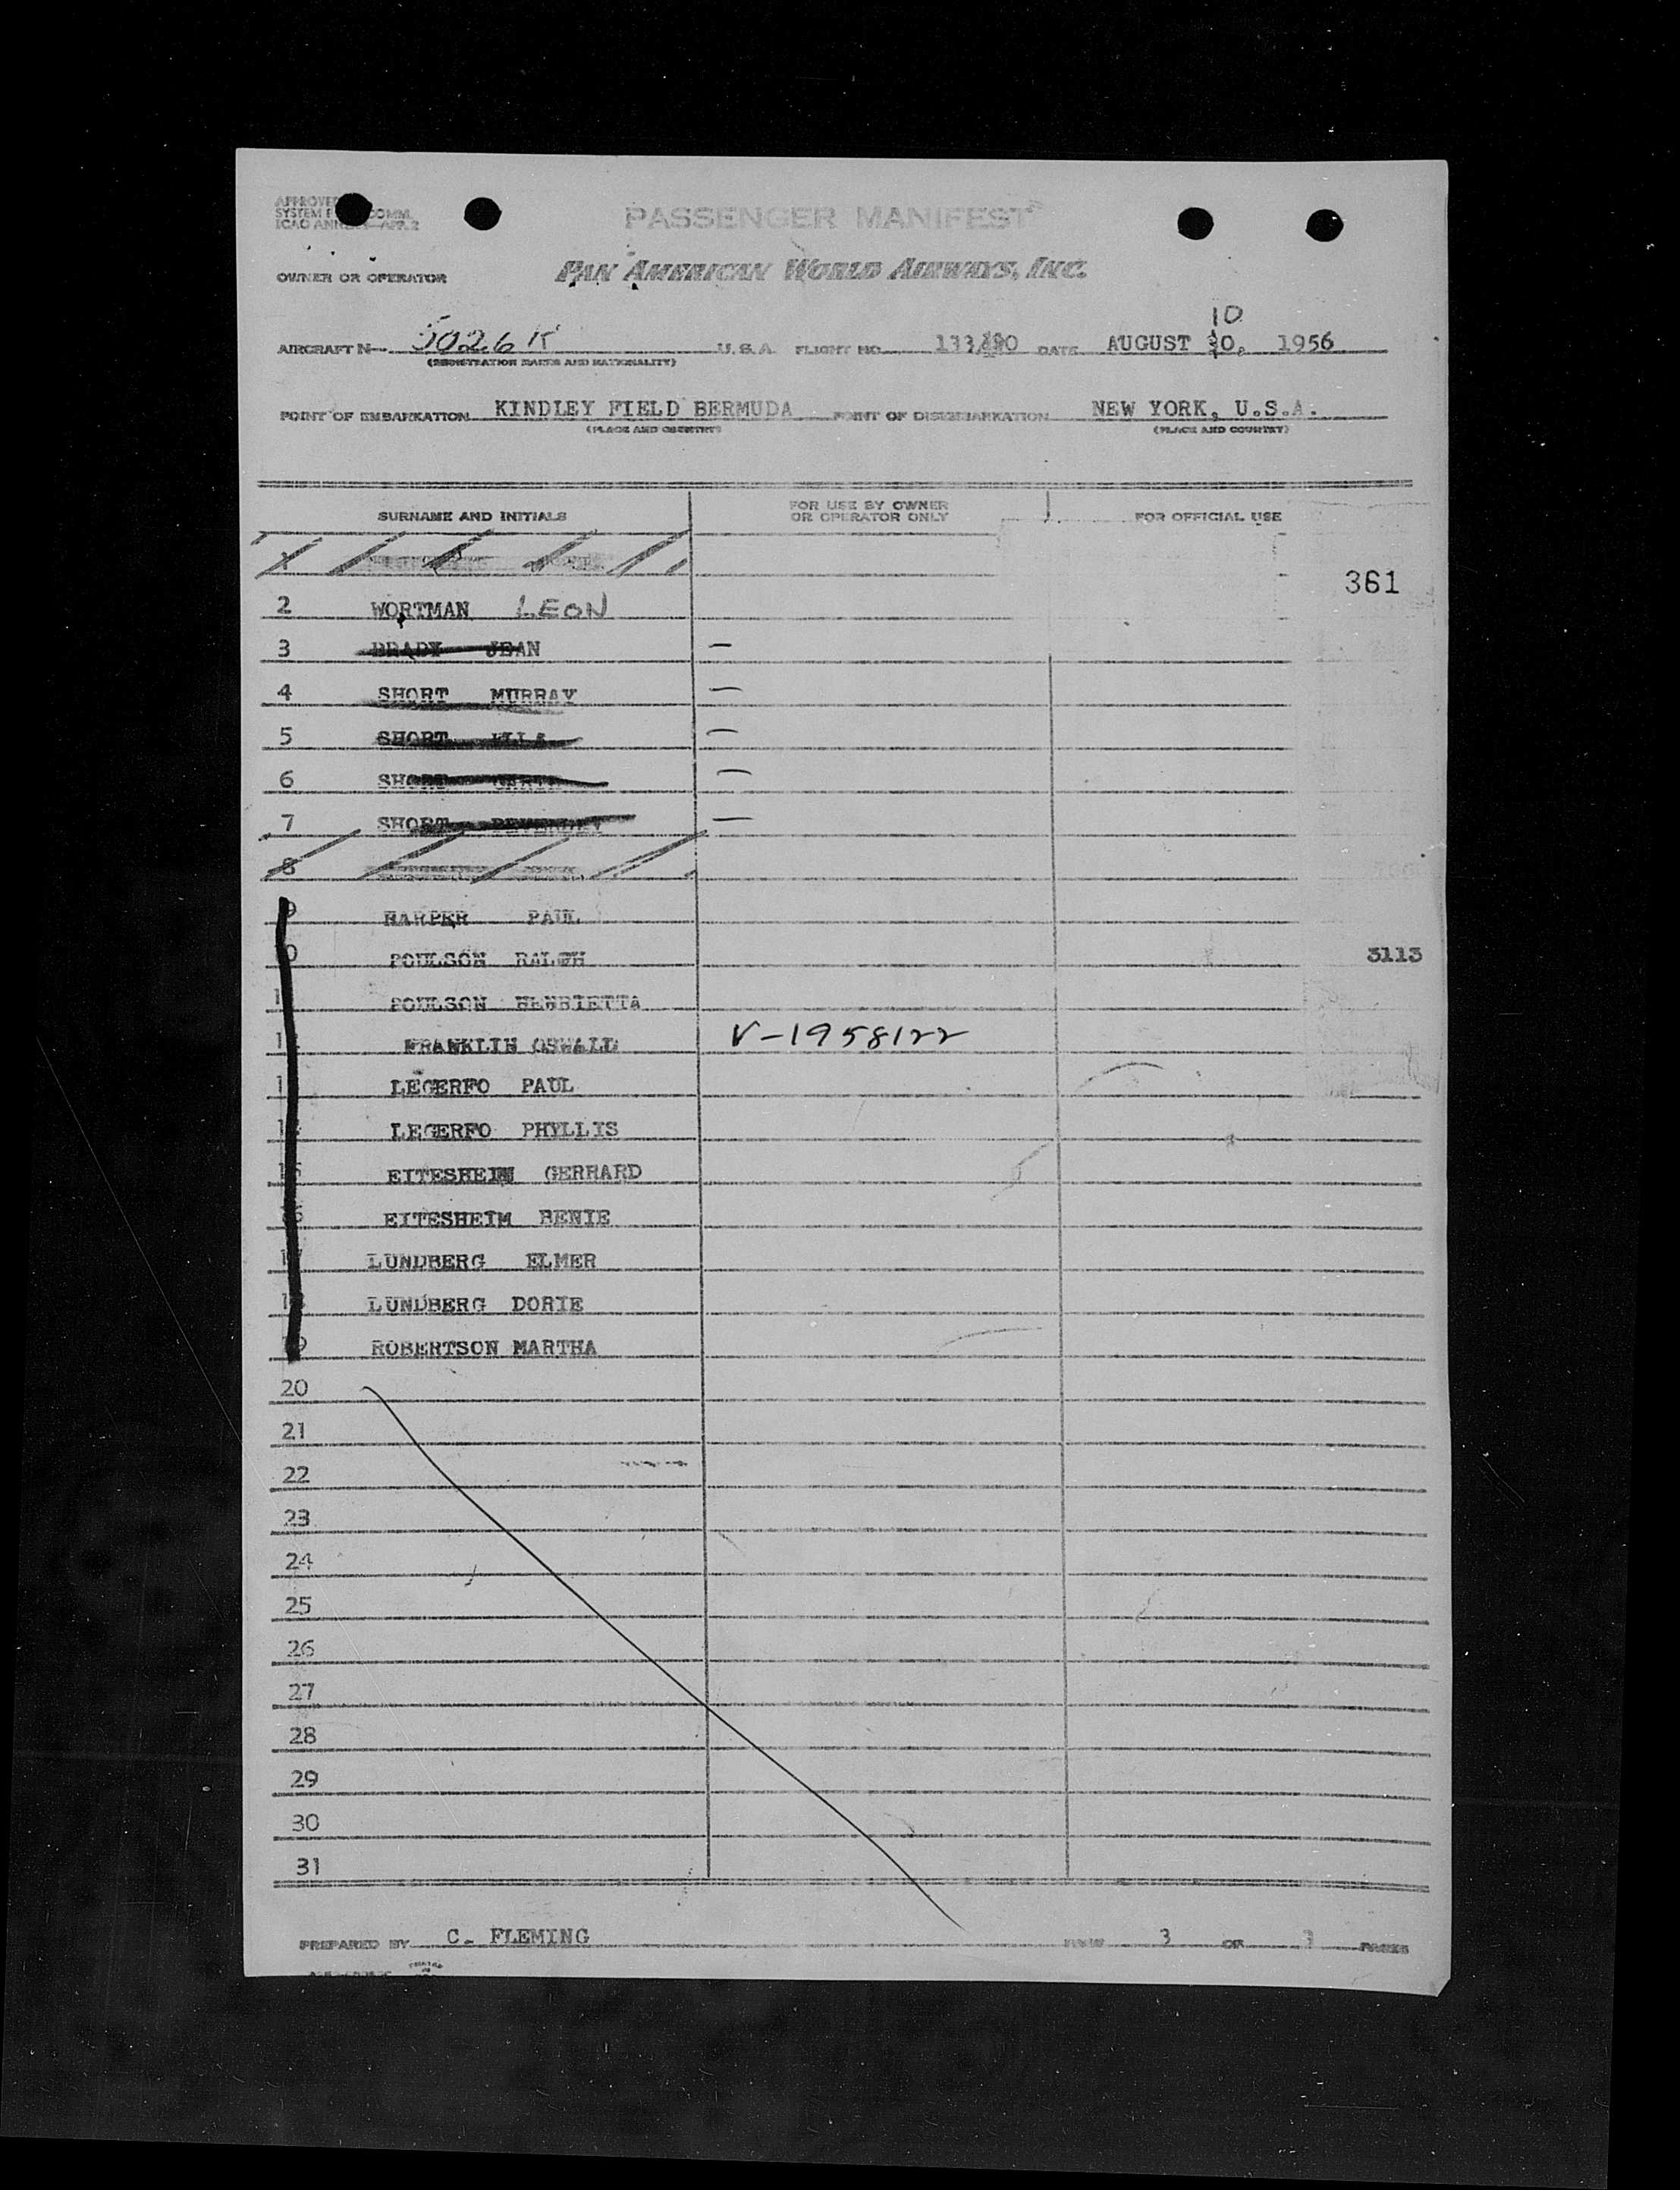 PASSENGER MANIFEST
OWNER OR OPERATOR PAN AMERICAN WORLD AIRWAYS, INC.
10
AIRCRAFT N— 5026 K U.S.A. FLIGHT NO. DATE AUGUST 30, 1956
(REGISTRATION MARKS AND NATIONALITY)
POINT OF EMBARKATION KINDLEY FIELD BERMUDA POINT OF DISEMBARKATION NEW YORK, U.S.A.
(PLACE AND COUNTRY) (PLACE AND COUNTRY)
SURNAME AND INITIALS FOR USE BY OWNER OR OPERATOR ONLY FOR OFFICIAL USE
361
2 WORTMAN LEON
3 BRADY JEAN —
4 SHORT MURRAY —
5 SHORT ELLA —
6 SHORT —
7 SHORT —
8
9 HARPER PAUL
10 POULSON RALPH 3113
11 POULSON HENRIETTA
12 FRANKLIN OSWALD V-1958122
13 LEGERFO PAUL
14 LEGERFO PHYLLIS
15 EITESHEIM GERRARD
16 EITESHEIM BENIE
17 LUNDBERG ELMER
18 LUNDBERG DORIE
19 ROBERTSON MARTHA
20
21
22
23
24
25
26
27
28
29
30
31
PREPARED BY C. FLEMING PAGE 3 OF 3 PAGES